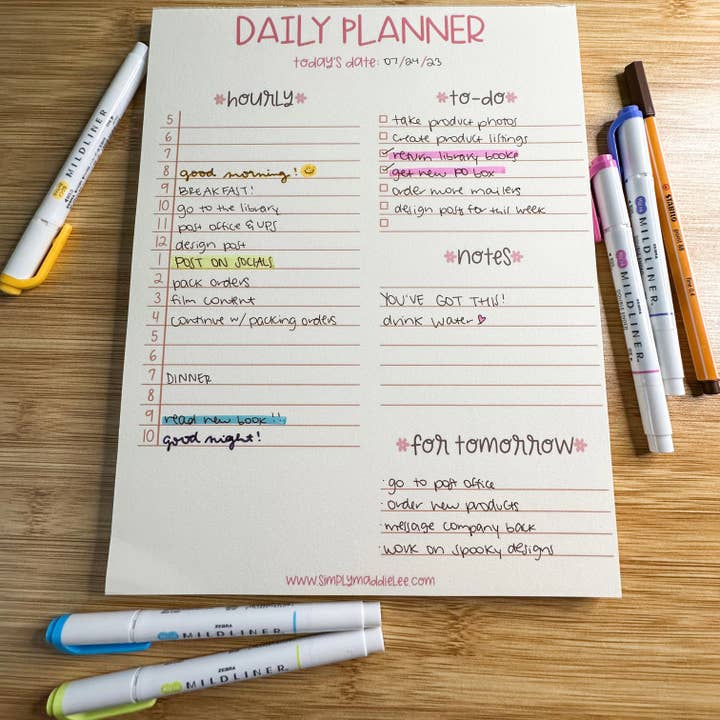 DAILY PLANNER
today's date: 07/24/23
*hourly*
5
6
7
8 good morning! 😊
9 BREAKFAST!
10 go to the library
11 post office & UPS
12 design post
1 POST ON SOCIALS
2 pack orders
3 film content
4 continue w/ packing orders
5
6
7 DINNER
8
9 read new book!!
10 good night!
*to-do*
take product photos
create product listings
return library books
get new PO box
order more mailers
design posts for this week
*notes*
YOU'VE GOT THIS!
drink water ♡
*for tomorrow*
· go to post office
· order new products
· message company back
· work on spooky designs
www.simplymaddielee.com
MILDLINER
MILDLINER
MILDLINER
STABILO
ZEBRA
MILDLINER
ZEBRA
MILDLINER